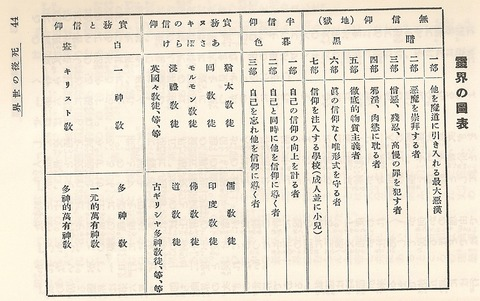 靈界の圖表
無信仰(地獄)
暗黑
一部 他を隧道に引き入れる最大惡漢
二部 惡魔を崇拜する者
三部 憎惡、殘忍、高慢の罪を犯す者
四部 邪淫、肉慾に耽る者
五部 徹底的物質主義者
六部 眞の信仰なく唯形式を守る者
七部 信仰を注入する學校(成人並に小兒)
半信仰
暮色
一部 自己の信仰の向上を計る者
二部 自己と同時に他を信仰に導く者
三部 自己を忘れ他を信仰に導く者
實務ヌキの信仰
あさぼらけ
猶太教徒 儒教徒
回教徒 印度教徒
モルモン教徒 佛教徒
浸禮教徒 道教徒
英國々教徒、等、等 古ギリシヤ多神教徒、等、等
實務と信仰
白晝
一神教 多神教
一元的萬有神教
キリスト教 多神的萬有神教
死後の世界
44